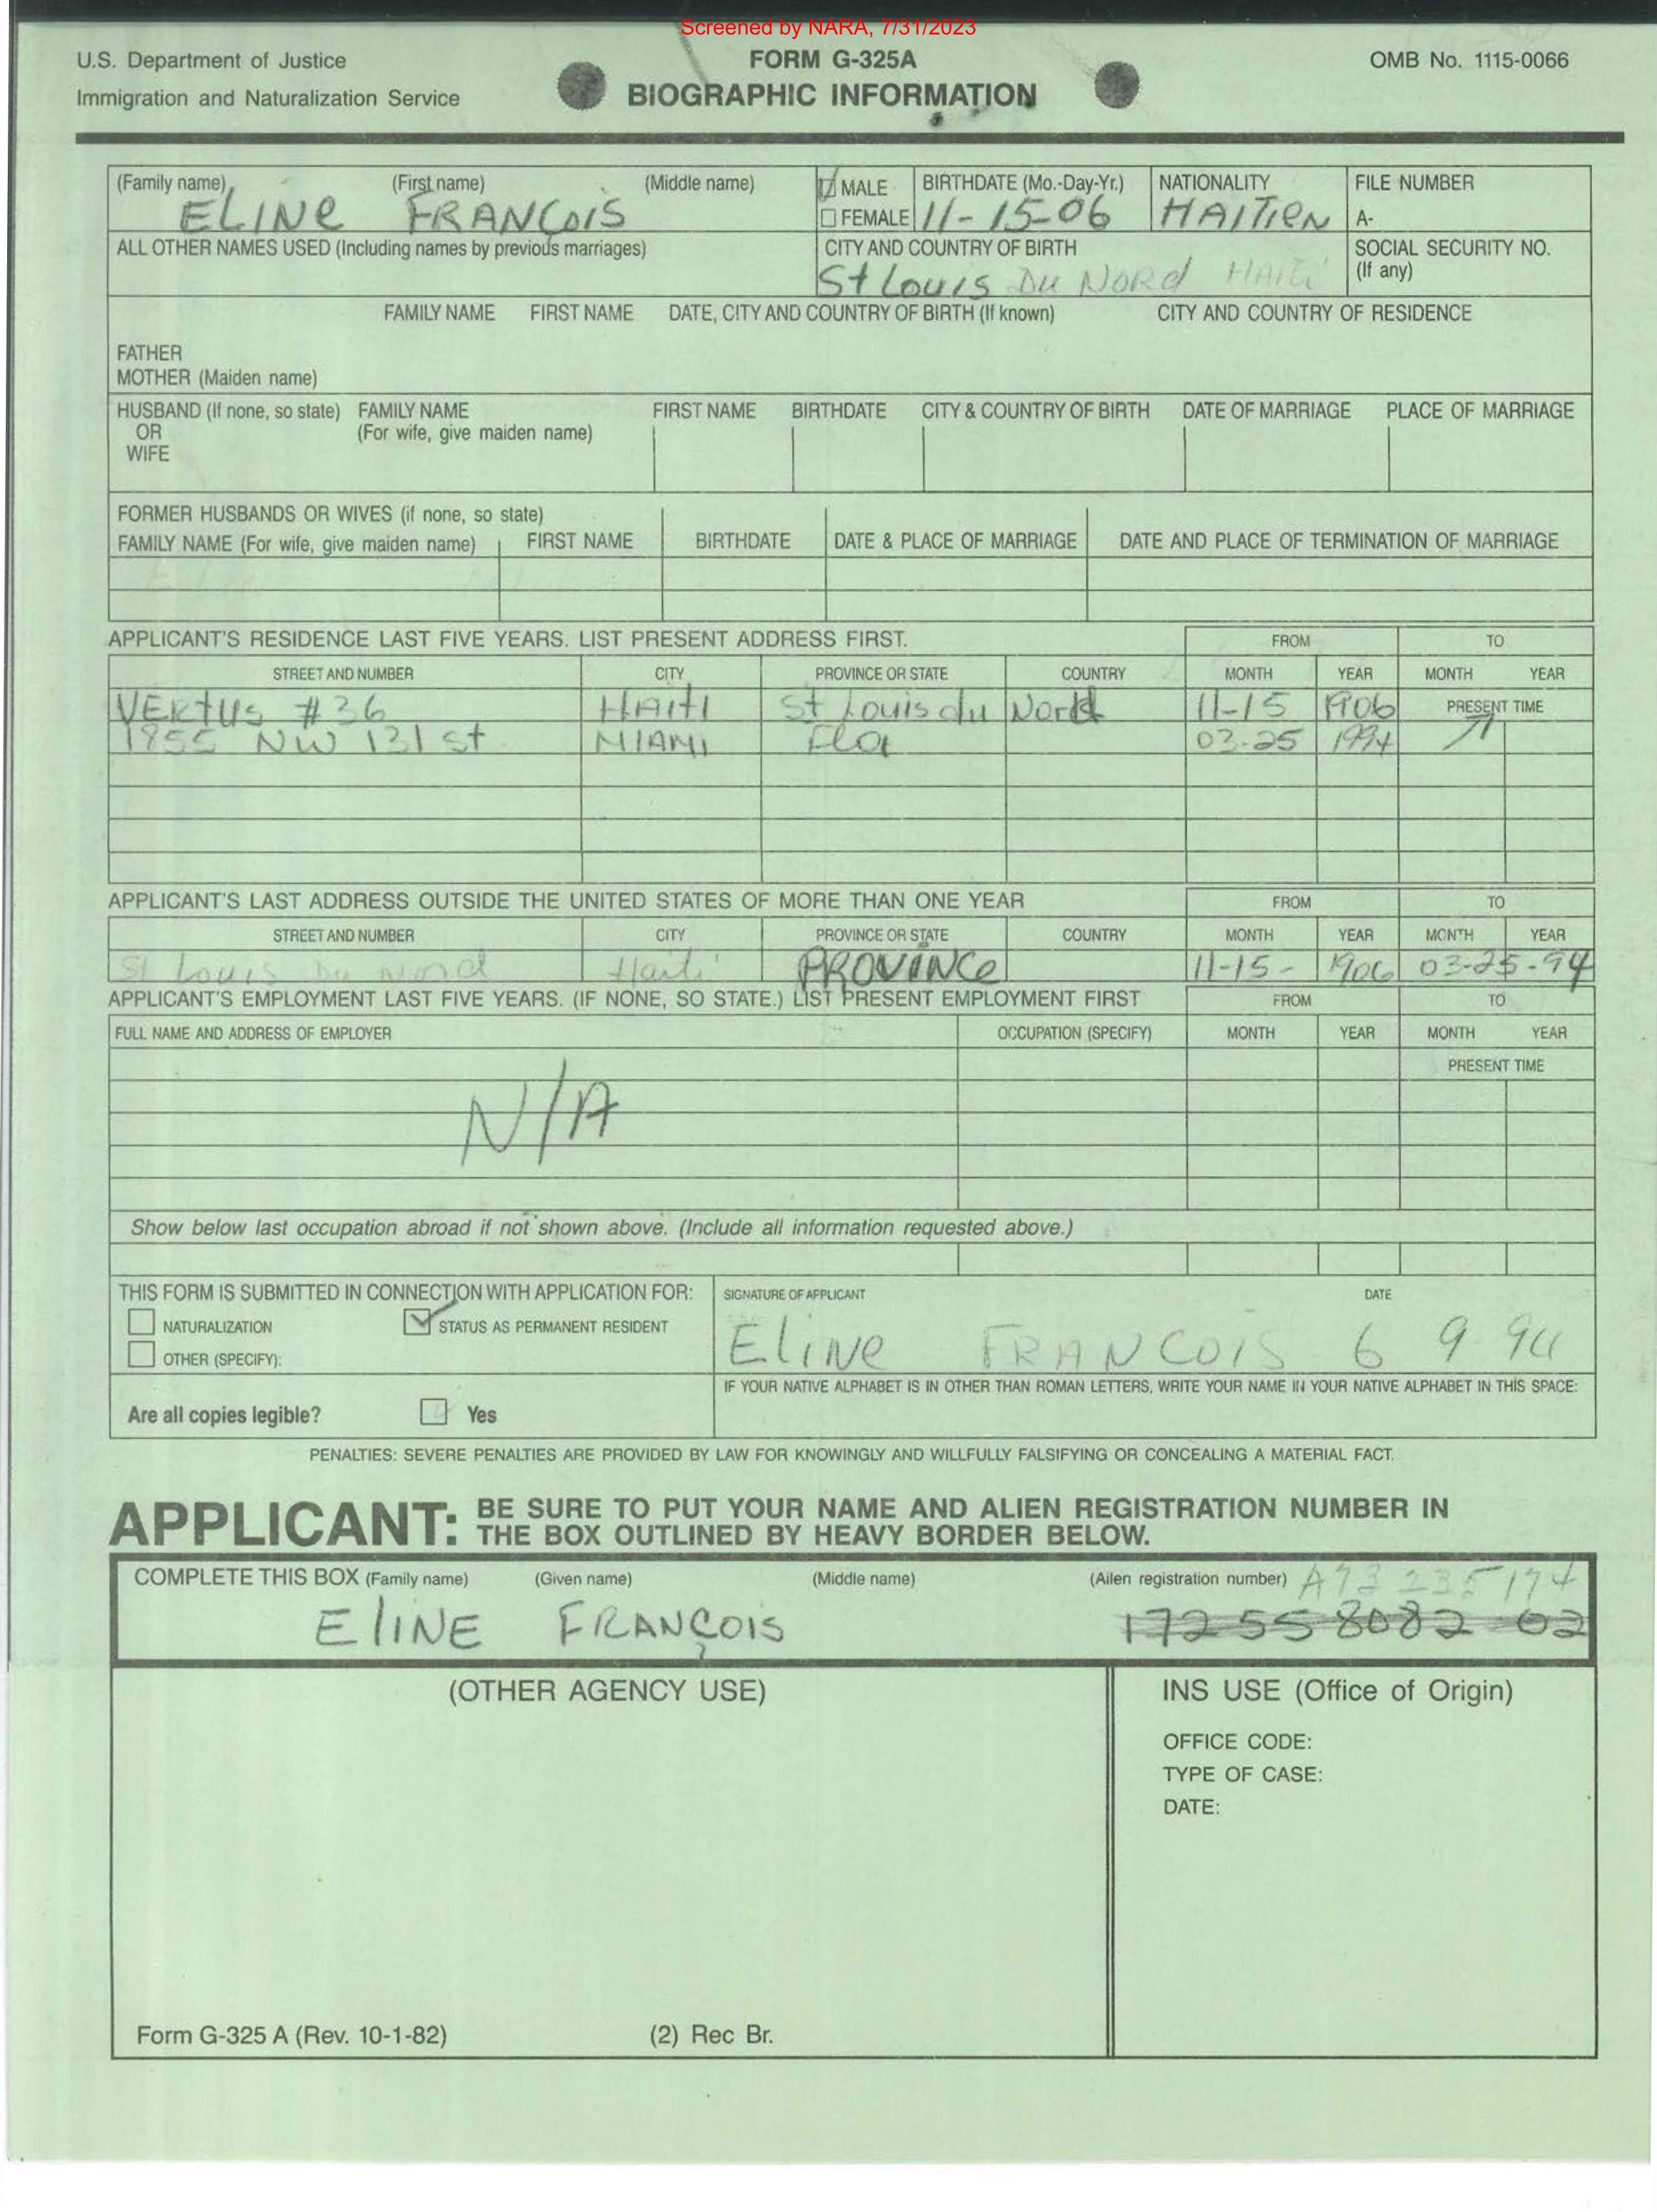 Screened by NARA, 7/31/2023
U.S. Department of Justice
Immigration and Naturalization Service
FORM G-325A
BIOGRAPHIC INFORMATION
OMB No. 1115-0066
(Family name) (First name) (Middle name)
ELINE FRANCOIS
MALE
FEMALE
BIRTHDATE (Mo.-Day-Yr.)
11-15-06
NATIONALITY
HAITIEN
FILE NUMBER
A-
ALL OTHER NAMES USED (Including names by previous marriages)
CITY AND COUNTRY OF BIRTH
St Louis Du Nord HAITI
SOCIAL SECURITY NO.
(If any)
FAMILY NAME FIRST NAME DATE, CITY AND COUNTRY OF BIRTH (If known) CITY AND COUNTRY OF RESIDENCE
FATHER
MOTHER (Maiden name)
HUSBAND (If none, so state) FAMILY NAME FIRST NAME BIRTHDATE CITY & COUNTRY OF BIRTH DATE OF MARRIAGE PLACE OF MARRIAGE
OR (For wife, give maiden name)
WIFE
FORMER HUSBANDS OR WIVES (if none, so state)
FAMILY NAME (For wife, give maiden name) FIRST NAME BIRTHDATE DATE & PLACE OF MARRIAGE DATE AND PLACE OF TERMINATION OF MARRIAGE
APPLICANT'S RESIDENCE LAST FIVE YEARS. LIST PRESENT ADDRESS FIRST. FROM TO
STREET AND NUMBER CITY PROVINCE OR STATE COUNTRY MONTH YEAR MONTH YEAR
VERTUS #36 HAITI St Louis du Nord 11-15 1906 PRESENT TIME
1855 NW 131 st MIAMI Flor 03-25 1994
APPLICANT'S LAST ADDRESS OUTSIDE THE UNITED STATES OF MORE THAN ONE YEAR FROM TO
STREET AND NUMBER CITY PROVINCE OR STATE COUNTRY MONTH YEAR MONTH YEAR
St Louis Du Nord Haiti PROVINCE 11-15- 1906 03-25-94
APPLICANT'S EMPLOYMENT LAST FIVE YEARS. (IF NONE, SO STATE.) LIST PRESENT EMPLOYMENT FIRST FROM TO
FULL NAME AND ADDRESS OF EMPLOYER OCCUPATION (SPECIFY) MONTH YEAR MONTH YEAR
PRESENT TIME
N/A
Show below last occupation abroad if not shown above. (Include all information requested above.)
THIS FORM IS SUBMITTED IN CONNECTION WITH APPLICATION FOR:
NATURALIZATION STATUS AS PERMANENT RESIDENT
OTHER (SPECIFY):
SIGNATURE OF APPLICANT DATE
Eline FRANCOIS 6 9 94
IF YOUR NATIVE ALPHABET IS IN OTHER THAN ROMAN LETTERS, WRITE YOUR NAME IN YOUR NATIVE ALPHABET IN THIS SPACE:
Are all copies legible? Yes
PENALTIES: SEVERE PENALTIES ARE PROVIDED BY LAW FOR KNOWINGLY AND WILLFULLY FALSIFYING OR CONCEALING A MATERIAL FACT.
APPLICANT: BE SURE TO PUT YOUR NAME AND ALIEN REGISTRATION NUMBER IN
THE BOX OUTLINED BY HEAVY BORDER BELOW.
COMPLETE THIS BOX (Family name) (Given name) (Middle name) (Alien registration number) A73 235 174
ElINE FRANÇOIS 172 55 8082 02
(OTHER AGENCY USE)
INS USE (Office of Origin)
OFFICE CODE:
TYPE OF CASE:
DATE:
Form G-325 A (Rev. 10-1-82) (2) Rec Br.